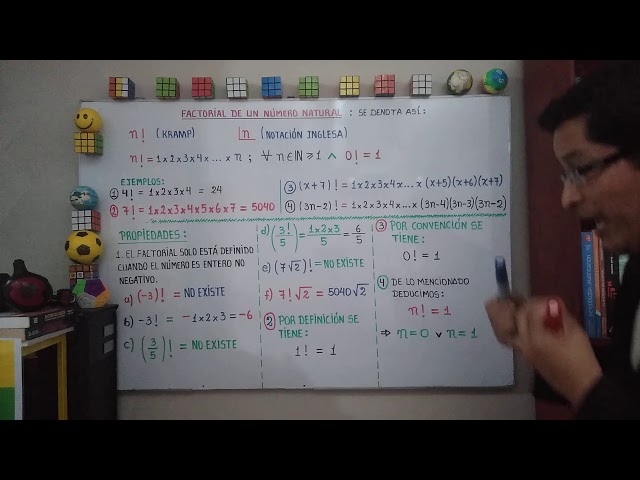 FACTORIAL DE UN NÚMERO NATURAL : SE DENOTA ASÍ:
n! (KRAMP) |n (NOTACIÓN INGLESA)
n! = 1x2x3x4x... x n ; ∀ n ∈ IN ≥ 1 ∧ 0! = 1
EJEMPLOS:
① 4! = 1x2x3x4 = 24
② 7! = 1x2x3x4x5x6x7 = 5040
③ (x+7)! = 1x2x3x4x... x (x+5)(x+6)(x+7)
④ (3n-2)! = 1x2x3x4x... x (3n-4)(3n-3)(3n-2)
PROPIEDADES:
1. EL FACTORIAL SOLO ESTÁ DEFINIDO
CUANDO EL NÚMERO ES ENTERO NO
NEGATIVO.
a) (-3)! = NO EXISTE
b) -3! = -1x2x3 = -6
c) (3/5)! = NO EXISTE
d) (3!/5) = 1x2x3/5 = 6/5
e) (7√2)! = NO EXISTE
f) 7!√2 = 5040√2
② POR DEFINICIÓN SE
TIENE:
1! = 1
③ POR CONVENCIÓN SE
TIENE:
0! = 1
④ DE LO MENCIONADO
DEDUCIMOS:
n! = 1
⇒ n=0 ∨ n=1